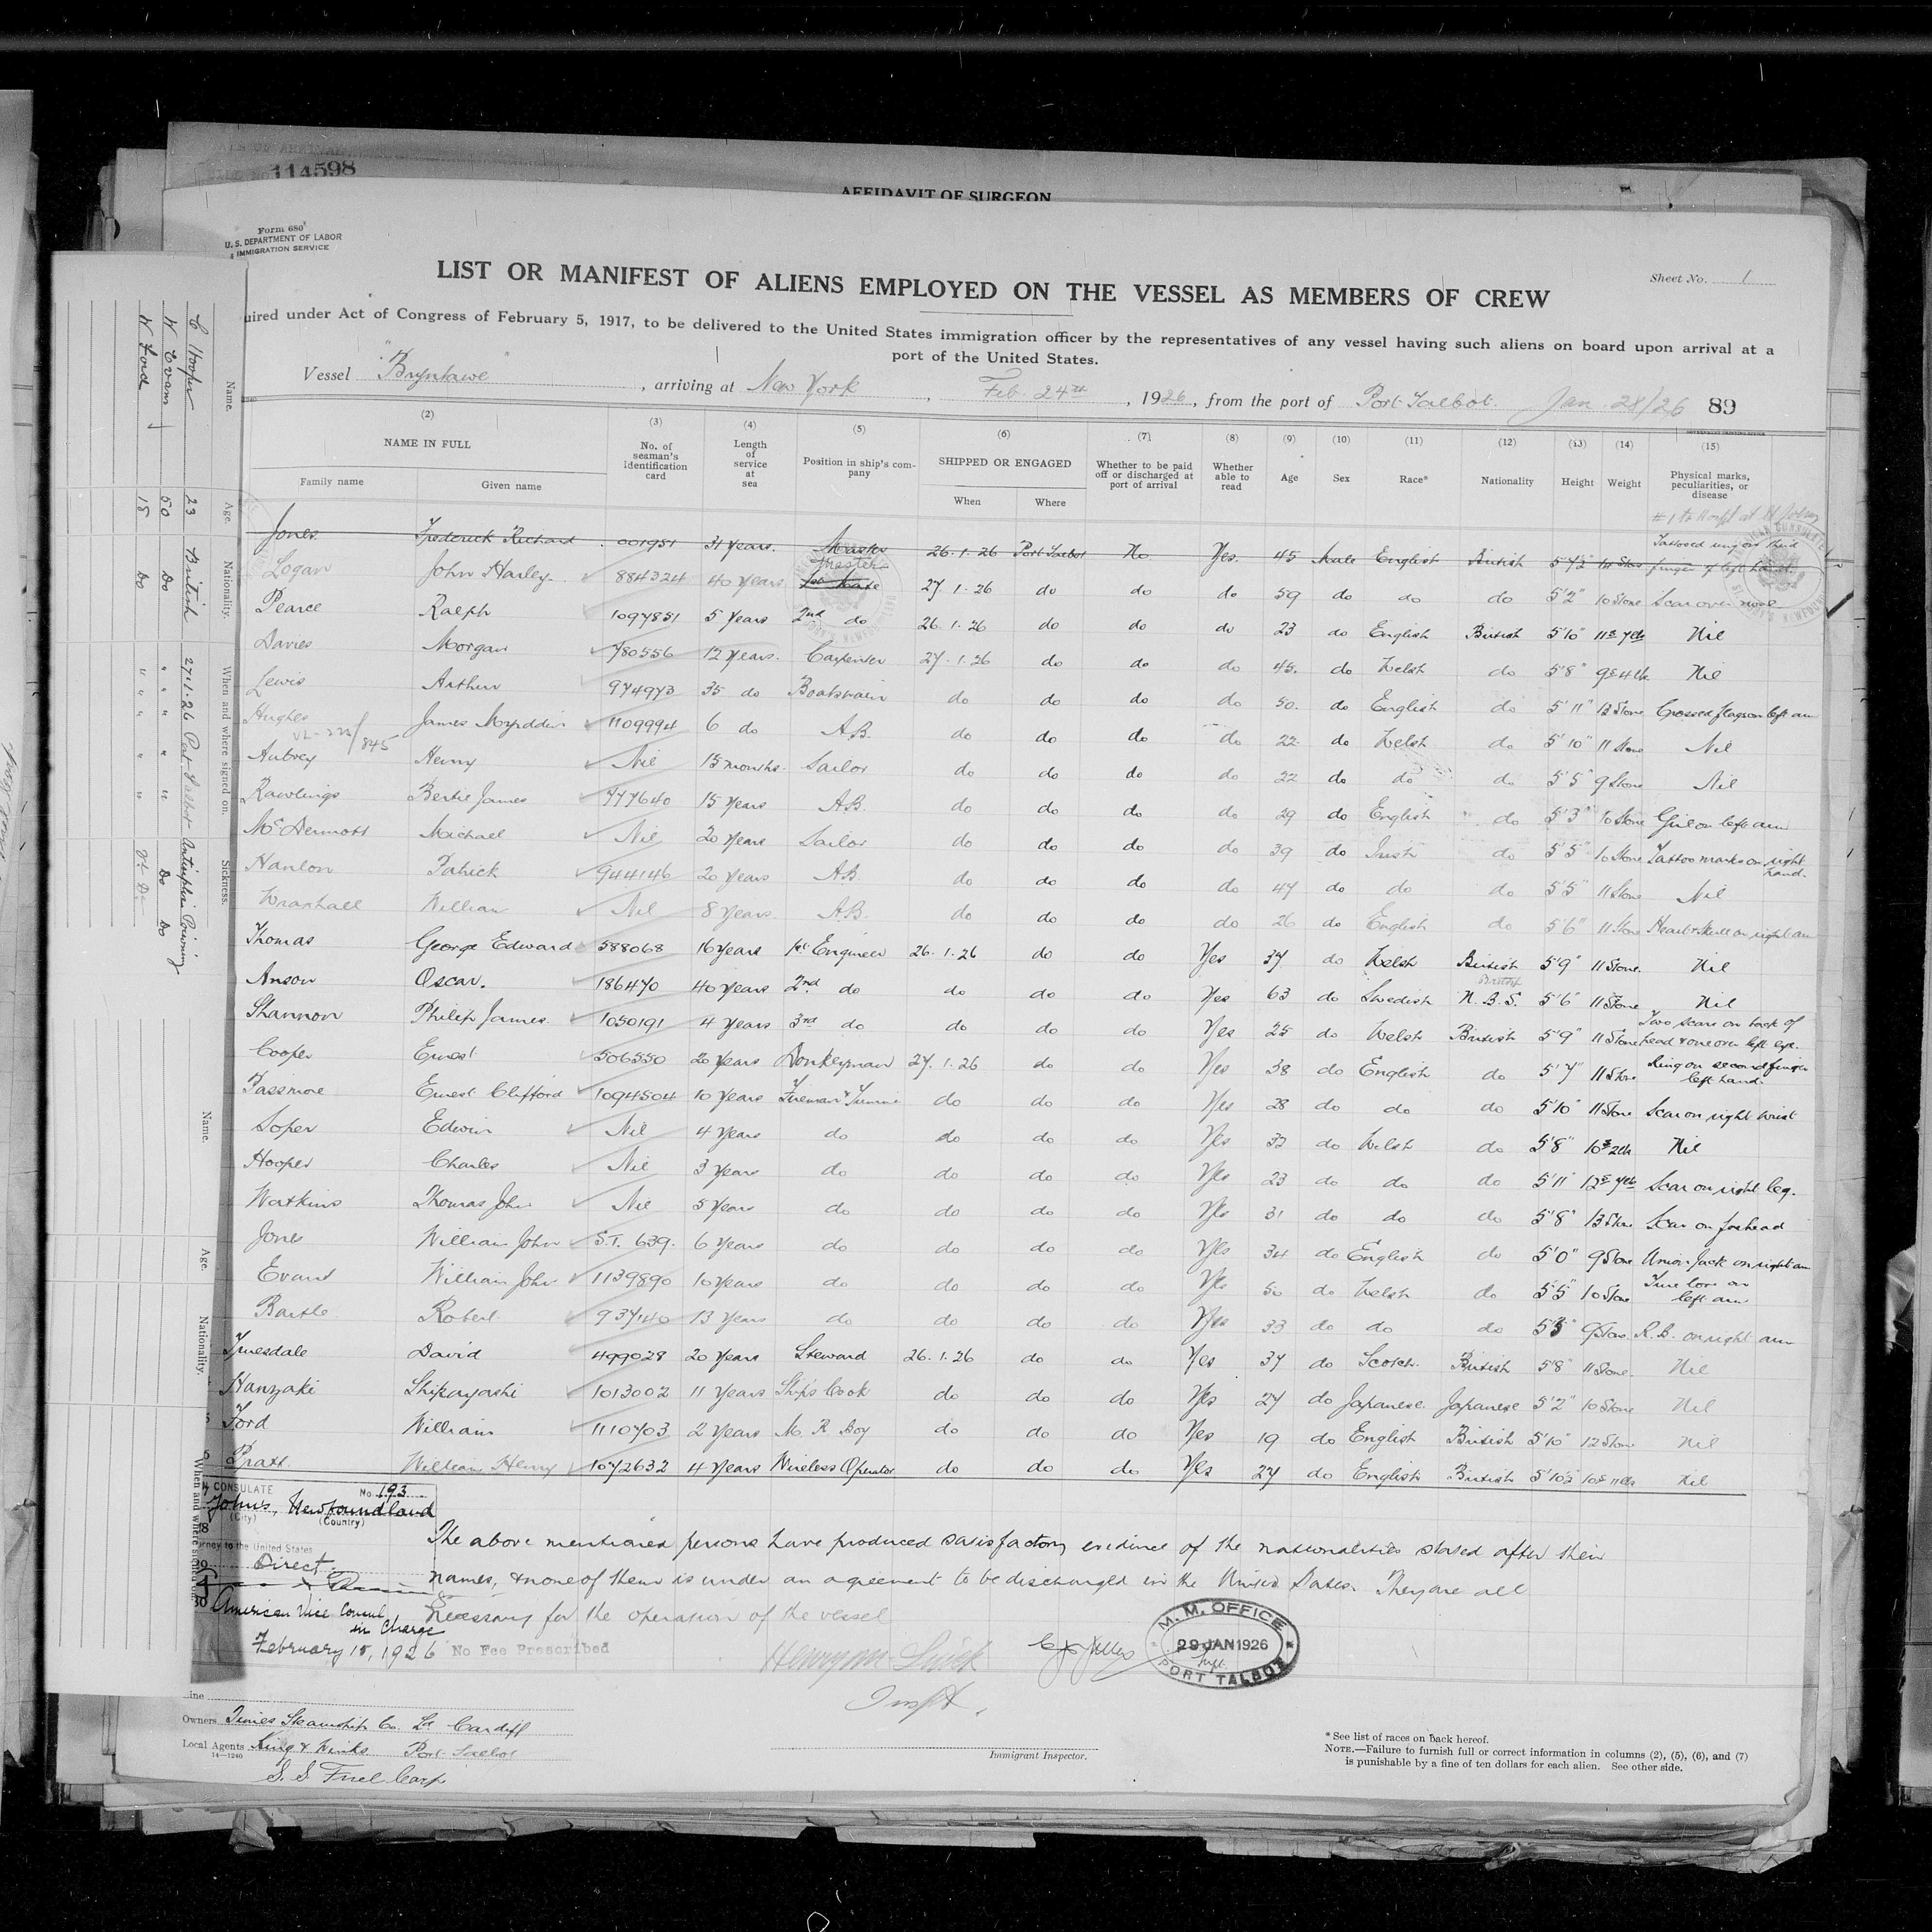 114598
AFFIDAVIT OF SURGEON
Form 680
U. S. DEPARTMENT OF LABOR
IMMIGRATION SERVICE
Sheet No. 1
LIST OR MANIFEST OF ALIENS EMPLOYED ON THE VESSEL AS MEMBERS OF CREW
uired under Act of Congress of February 5, 1917, to be delivered to the United States immigration officer by the representatives of any vessel having such aliens on board upon arrival at a
port of the United States.
Vessel "Bryntawe", arriving at New York, Feb. 24th, 1926, from the port of Port Talbot. Jan 28/26 89
(2) (3) (4) (5) (6) (7) (8) (9) (10) (11) (12) (13) (14) (15)
NAME IN FULL No. of seaman's identification card Length of service at sea Position in ship's company SHIPPED OR ENGAGED Whether to be paid off or discharged at port of arrival Whether able to read Age Sex Race* Nationality Height Weight Physical marks, peculiarities, or disease
Family name Given name When Where
Jones Frederick Richard 001951 31 Years. Master 26.1.26 Port Talbot No Yes. 45 Male English British Tattooed ring on third finger of left hand
Logan John Harley 884324 40 Years Master 1st Mate 27.1.26 do do do 59 do do do 5'2" 10 Stone Scar over nose
Pearce Ralph 1097851 5 Years 2nd do 26.1.26 do do do 23 do English British 5'10" Nil
Davies Morgan 780556 12 Years. Carpenter 27.1.26 do do do 45. do Welsh do 5'8" Nil
Lewis Arthur 974973 35 do Boatswain do do do do 50. do English do 5'11" 13 Stone Crossed flags on left arm
Hughes James Myrddin 1109994 6 do A.B. do do do do 22 do Welsh do 5'10" 11 Stone Nil
Aubrey Henry Nil 15 months Sailor do do do do 22 do do do 5'5" 9 Stone Nil
Rawlings Bertie James 777640 15 Years A.B. do do do do 29 do English do 5'3" 10 Stone Girl on left arm
McDermott Michael Nil 20 Years Sailor do do do do 39 do Irish do 5'5" 10 Stone Tattoo marks on right hand.
Hanlon Patrick 944146 20 Years A.B. do do do do 47 do do do 5'5" 11 Stone Nil
Wraxhall William Nil 8 Years A.B. do do do do 26 do English do 5'6" 11 Stone Heart & Skull on right arm
Thomas George Edward 588068 16 Years 1st Engineer 26.1.26 do do Yes 37 do Welsh British 5'9" 11 Stone. Nil
Anson Oscar. 186470 40 Years 2nd do do do do Yes 63 do Swedish N.B.S. British 5'6" 11 Stone Nil
Shannon Philip James. 1050191 4 Years 3rd do do do do Yes 25 do Welsh British 5'9" 11 Stone Two scars on back of head & one over left eye.
Cooper Ernest 506550 20 Years Donkeyman 27.1.26 do do Yes 38 do English do 5'7" 11 Stone Ring on second finger left hand.
Passmore Ernest Clifford 1094504 10 Years Fireman & Trimmer do do do Yes 28 do do do 5'10" 11 Stone Scar on right wrist
Soper Edwin Nil 4 Years do do do do Yes 32 do Welsh do 5'8" Nil
Hooper Charles Nil 3 Years do do do do Yes 23 do do do 5'11" Scar on right leg.
Watkins Thomas John Nil 5 Years do do do do Yes 31 do do do 5'8" 13 Stone Scar on forehead
Jones William John S.T. 639. 6 Years do do do do Yes 34 do English do 5'0" 9 Stone Union Jack on right arm
Evans William John 1139890 10 Years do do do do Yes 50 do Welsh do 5'5" 10 Stone True love on left arm
Bartle Robert 937140 13 Years do do do do Yes 33 do do do 5'5" R.B. on right arm
Truesdale David 499028 20 Years Steward 26.1.26 do do Yes 37 do Scotch. British 5'8" 11 Stone. Nil
Hanzaki Shikayashi 1013002 11 Years Ship's Cook do do do Yes 27 do Japanese Japanese 5'2" 10 Stone Nil
Ford William 1110703 2 Years M. R. Boy do do do Yes 19 do English British 5'10" 12 Stone Nil
Pratt William Henry 1072632 4 Years Wireless Operator do do do Yes 27 do English British 5'10½ Nil
CONSULATE No. 193
John's, Newfoundland
(City) (Country)
rney to the United States
Direct
American Vice Consul
in Charge
February 15, 1926 No Fee Prescribed
The above mentioned persons have produced satisfactory evidence of the nationalities stated after their
names, & none of them is under an agreement to be discharged in the United States. They are all
necessary for the operation of the vessel
M. M. OFFICE
29 JAN 1926
Supt.
PORT TALBOT
Insptr.
Immigrant Inspector.
Line
Owners Times Steamship Co. Ld Cardiff
Local Agents King & Winks Port Talbot
14—1240
S. S. Fuel Corp
* See list of races on back hereof.
NOTE.—Failure to furnish full or correct information in columns (2), (5), (6), and (7)
is punishable by a fine of ten dollars for each alien. See other side.
Name. Age. Nationality. When and where signed on. Sickness.
C Hooper 23 British 27.1.26 Port Talbot
W Evans 50 Do " " " " Do Do
W Ford 18 Do " " " "
Name. Age. Nationality. When and where signed on.